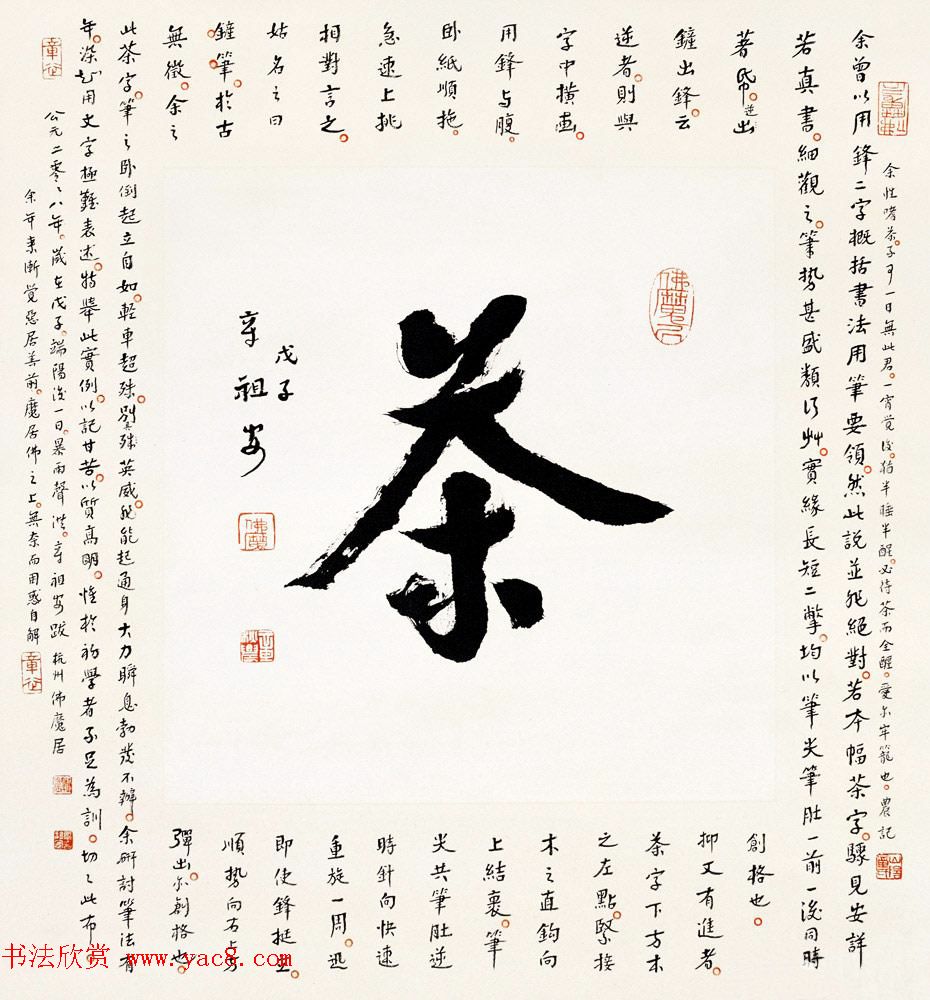 茶
戊子
辛祖安
余曾以用鋒二字概括書法用筆要領。然此說並非絕對。若本幅茶字。驟見安詳
若真書。細觀之。筆勢甚盛類行艸。實緣長短二撇。均以筆尖筆肚一前一後同時
著帋。逆出
鋒出鋒。云
逆者。則與
字中橫畫。
用鋒与腹。
臥紙順拖。
急速上挑
相對言之。
姑名之曰
鏟筆。於古
無徵。余之
創格也。
抑又有進者。
茶字下方木
之左點。緊接
木之直鈎向
上結裹。筆
尖共筆肚逆
時針向快速
重旋一周。迅
即使鋒挺立
順勢向右上方
彈出。亦創格也。
此茶字。筆之臥倒起立自如。輕車超殊。別殊英威。非能起通身大力瞬息勃發不辦。余研討筆法有
年。深知用文字極難表述。特舉此實例。以記甘苦。以質高明。惟於初學者不足為訓。切切此布。
公元二零零八年。歲在戊子。端陽後一日。暴雨聲洪。辛祖安跋 杭州佛魔居
余年來漸覺惡居善前。魔居佛之上。無奈而用惑自解
余性嗜茶。不可一日無此君。一宵覺後。猶半睡半醒。必待茶而全醒。受尔牢籠也。農記
书法欣赏 www.yac8.com